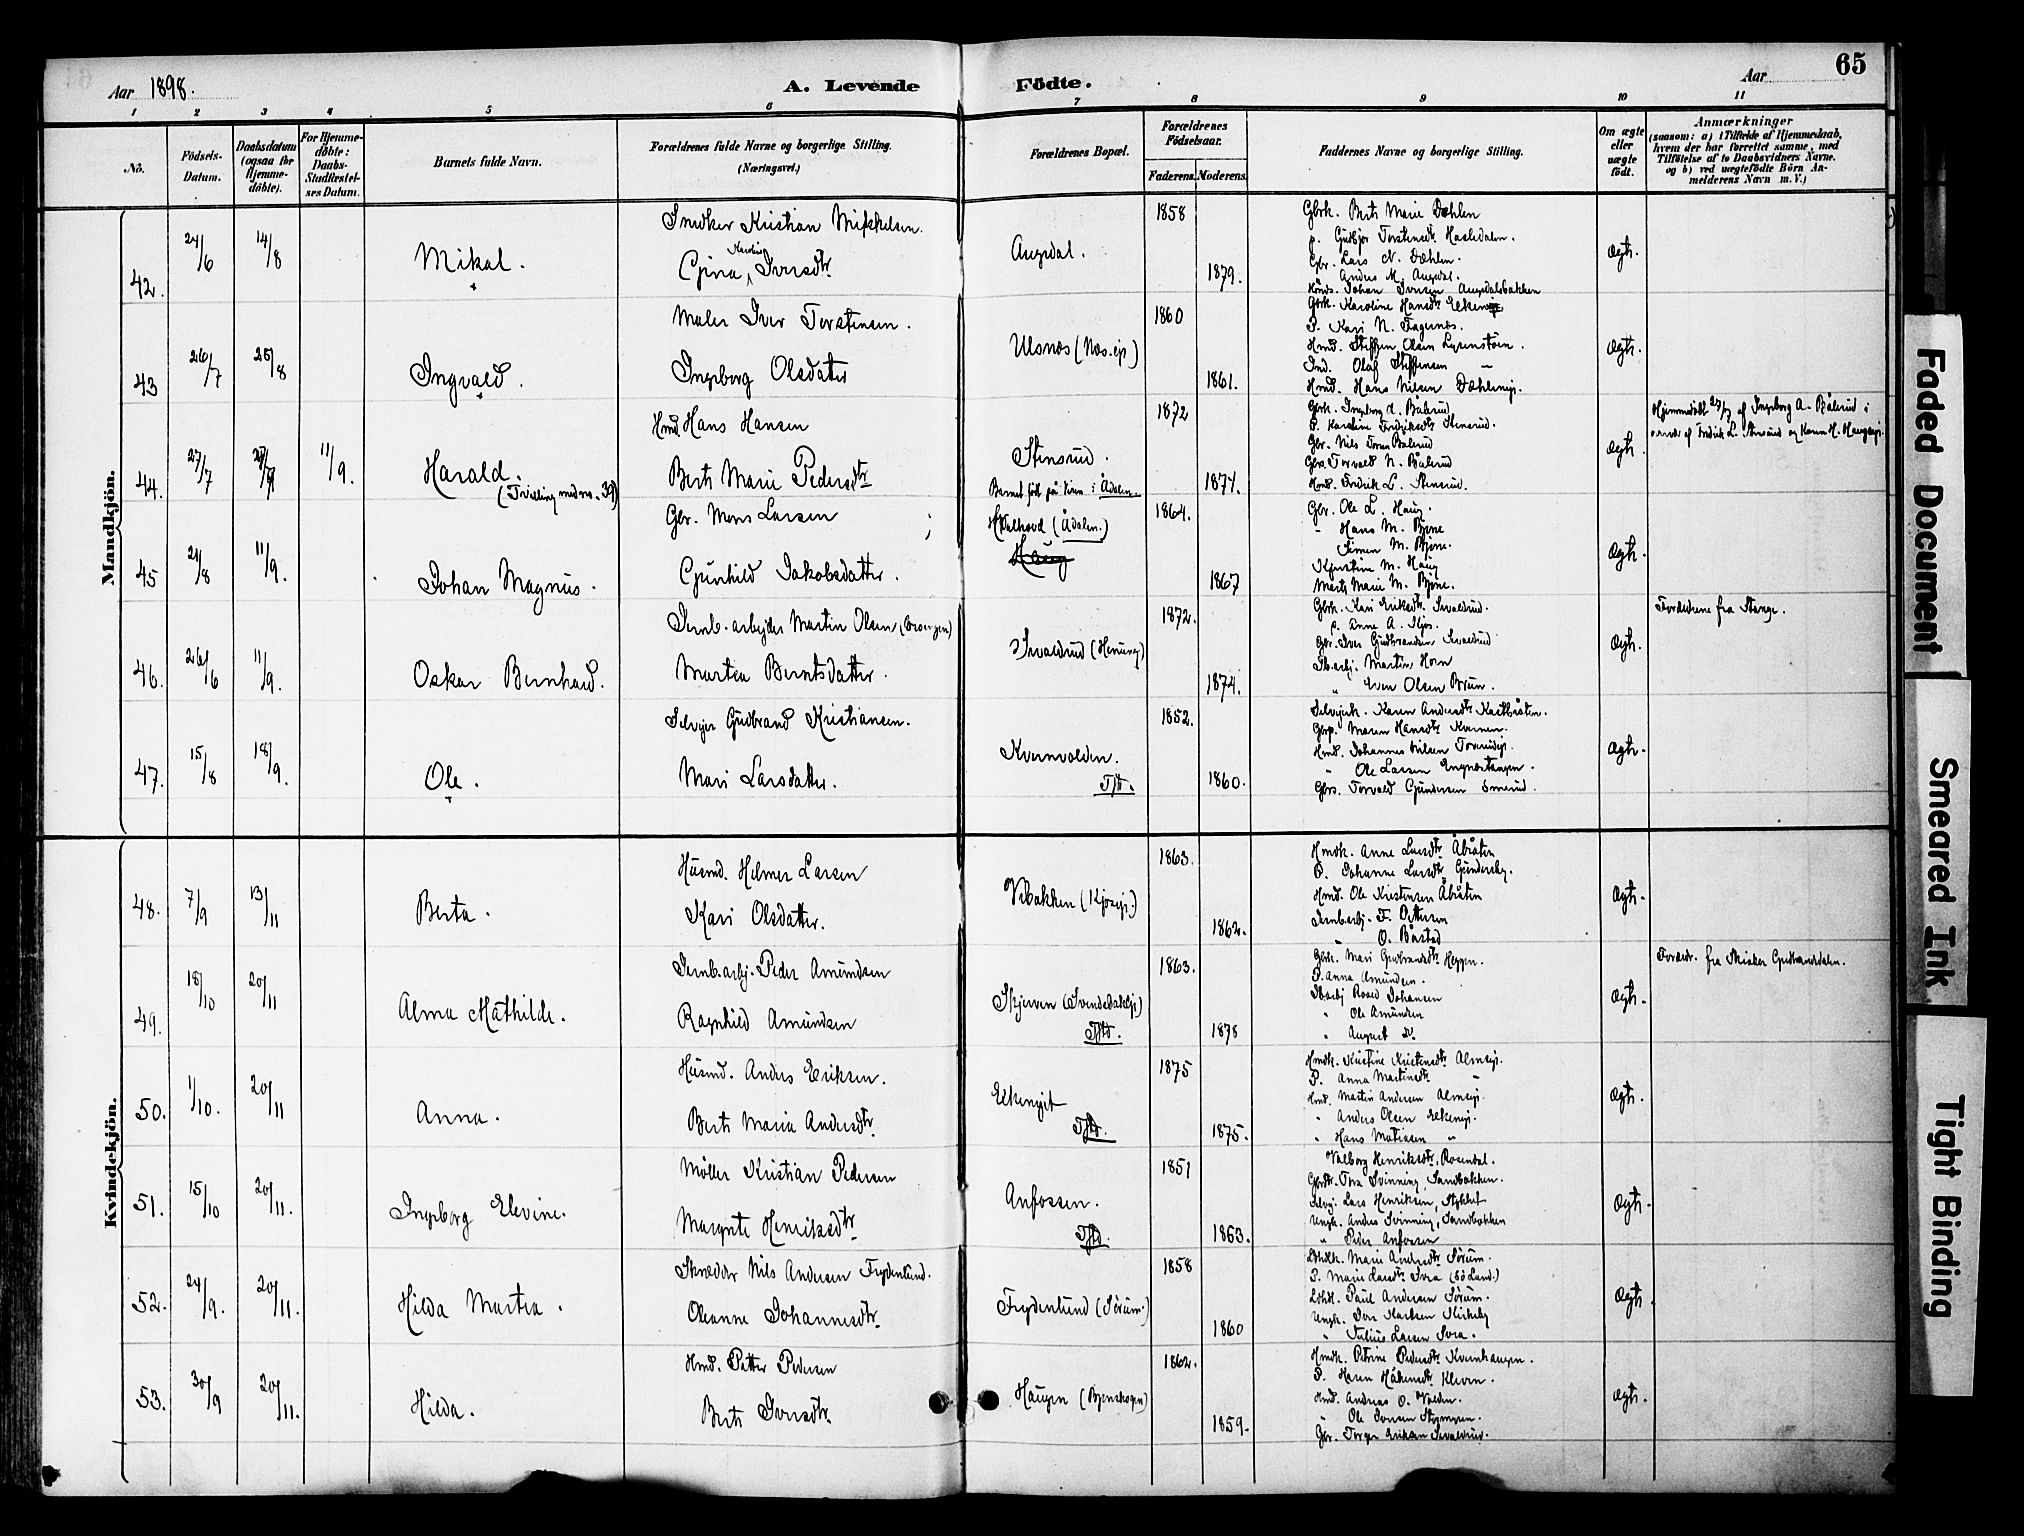 Aar 1898. A. Levende Födte. Aar 65
1 2 3 4 5 6 7 8 9 10 11
No. Födsels-Datum. Daabsdatum (ogsaa for Hjemme-döbte). For Hjemme-döbte: Daabs-Stadfæstel-ses Datum. Barnets fulde Navn. Forældrenes fulde Navne og borgerlige Stilling. (Næringsvei.) Forældrenes Bopæl. Forældrenes Födselsaar. Faderens. Moderens. Faddernes Navne og borgerlige Stilling. Om ægte eller uægte födt. Anmærkninger (saasom: a) i Tilfælde af Hjemmedaab, hvem der har forrettet samme, med Tilföielse af to Daabsvidners Navne. og b) ved uægtefödte Börn An-melderens Navn m. V.)
Mandkjön.
42. 24/6 14/8 Mikal.
Snedker Kristian Mikkelsen.
Gina Karoline Iversdtr
Augedal. 1858 1879.
Gbrk. Berte Marie Dæhlen
p. Gudbjør Torstensdtr. Hasledalen.
Gbr. Lars N. Dæhlen.
Anders M. Augedal.
Johan Iversen Augedalsbakken
Ægte.
43 26/7 25/8 Ingvald.
Maler Iver Torstensen.
Ingeborg Olsdatter
Ulsnæs (Næs.ejr) 1860 1861.
Gbrk. Karoline Hansdtr
P. Kari N. Fagernæs.
Hmd. Steffen Olsen
Ind. Olaf Steffensen "
Hmd. Hans Nilsen Dæhlenejr.
Ægte.
44. 27/7 11/9. Harald. (Tvilling med no. 39)
Hmd. Hans Hansen
Berte Marie Pedersdtr
Stensrud.
Barnet født på Viken i Ådalen.
1872 1874.
Gbrk. Ingeborg A. Bålerud
P. Karoline Fredriksdtr Stensrud.
Gbr. Nils Bålerud
Gbrs. Torvald N. Bålerud
Hmd. Fredrik L. Stensrud.
Ægte.
Hjemmedøbt 27/7 af Ingeborg A. Bålerud i
nærvær af Fredrik L. Stensrud og Karen H. Haugsejr.
45 21/8 11/9. Johan Magnus.
Gbr. Mons Larsen
Gunhild Jakobsdatter.
Kalhovd (Ådalen.)
Haug
1864. 1867
Gbr. Ole L. Haug.
" Hans M. Bjøne
Simen M. Bjøne.
Kjerstine M. Haug
Marte Marie M. Bjøne.
Ægte.
46. 26/6 11/9. Oskar Bernhard.
Jernb.arbejder Martin Olsen
Martea Berntsdatter.
Sivaldrud (Hønung) 1872. 1874.
Gbrk. Kari Eriksdtr Sivaldrud.
p. Anne A.
Gbr. Iver Gudbrandsen Sivaldrud
Jb.arbj. Martin Horn
" Even Olsen Bruun.
Ægte.
Forældrene fra Stange.
47. 15/8 18/9. Ole.
Selvejer Gudbrand Kristiansen.
Mari Larsdatter.
Kvernvolden. 1852. 1860.
Selvejerk. Karen Andersdtr Kastbråten.
Gbrp. Maren Hansdtr Kvernen.
Hmd. Johannes Nilsen
" Ole Larsen Engnæstangen.
Gbrs. Torvald Gundersen Smerud.
Ægte.
Kvindekjön.
48. 7/9 13/11 Berta.
Husmd. Helmer Larsen
Kari Olsdatter.
Vebakken (Kjosejr.) 1863. 1862.
Hmdk. Anne Larsdtr. Åbråten
P. Johanne Larsdtr. Gundersby.
Hmd. Ole Kristensen Åbråten
Jernb.arbj. F. Pettersen
" O. Børstad
Ægte.
49. 18/10 20/11 Alma Mathilde.
Jernb.arbj. Peder Amundsen
Ragnhild Amundsen
Skjerven 1863. 1878
Gbrk. Mari Gudbrandsdtr. Heggen.
P. Anna Amundsen.
Jbarbj. Johansen
" Ole Amundsen
" August do.
Ægte.
Foræld. fra Skiaker Gudbrandsdalen.
50. 1/10. 20/11 Anna.
Husmd. Anders Eriksen.
Berte Maria Andersdtr.
1875 1875.
Hmdk. Kristine Kristensdtr Almsejr.
P. Anna Martinsdtr "
Hmd. Martin Andersen Almsejr.
" Anders Olsen
" Hans Matiasen "
Ægte.
51. 15/10 20/11. Ingeborg Elevine.
Møller Kristian Pedersen
Margrete Henriksdtr
Anfossen. 1851 1863.
Valborg Henriksdtr, Rosendal.
Svinning, Sandbakken.
Selvej. Lars Henriksen,
Ungk. Anders Svinning, Sandbakken
" Peder Anfossen
Ægte.
52. 24/9. 20/11. Hilda Martea.
Skrædder Nils Andersen Frydenlund.
Oleanne Johannesdtr.
Frydenlund (Sørum.) 1858 1860
Marie Andersdtr Sørum.
P. Marie Larsdtr. Svea (Sø Land.)
Paul Andersen Sørum.
Ungk. Iver Karlsen Kirkeby
" Julius Larsen Svea.
Ægte.
53. 30/9 20/11. Hilda.
Hmd. Petter Pedersen
Berte Iversdtr.
Haugen (Bjønskogen) 1862. 1859.
Hmdk. Petrine Pedersdtr Kvernhaugen.
P. Karen Håkensdtr Kleven.
Hmd. Andreas O. Volden.
" Ole Iversen
Gbr. Torger Eriksen Sivaldrud.
Ægte.
Faded Document
Smeared Ink
Tight Binding